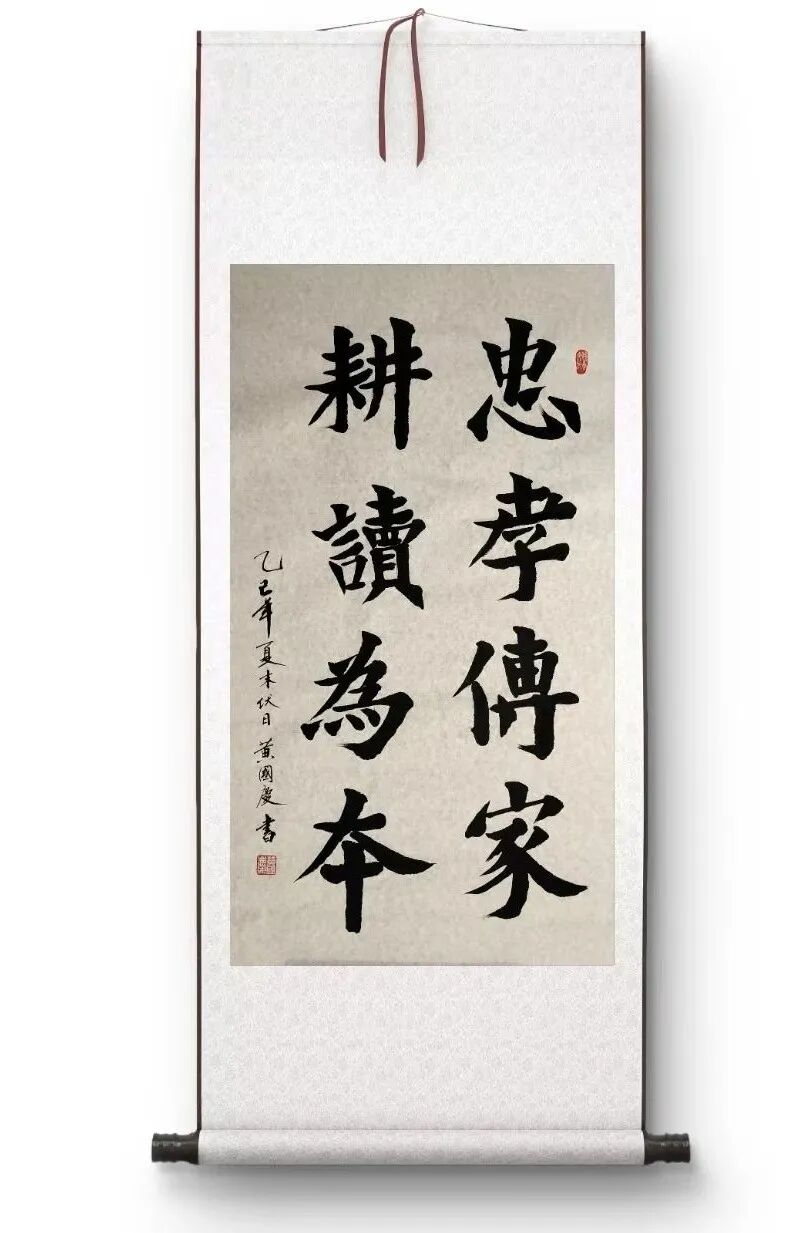 忠孝傳家
耕讀為本
乙巳年夏末伏日黄國慶書